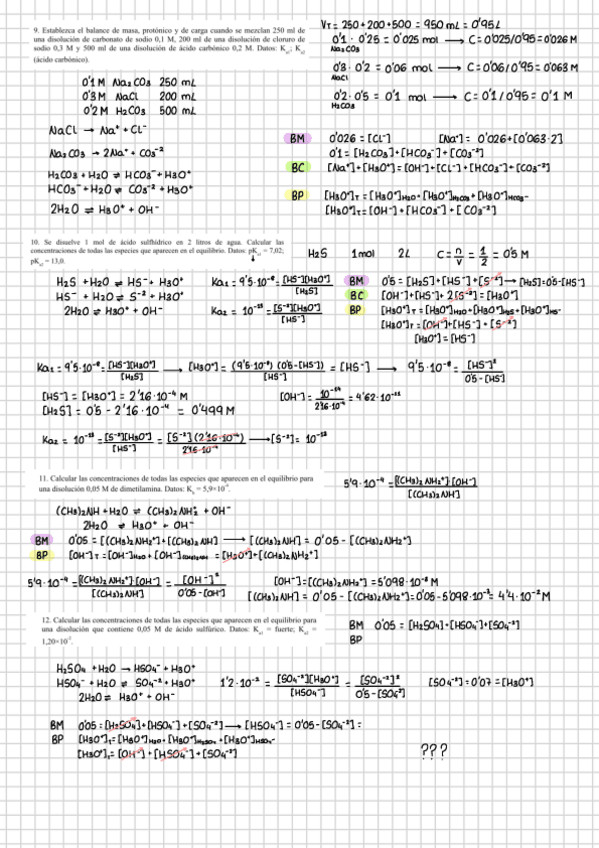 9. Establezca el balance de masa, protónico y de carga cuando se mezclan 250 ml de
una disolución de carbonato de sodio 0,1 M, 200 ml de una disolución de cloruro de
sodio 0,3 M y 500 ml de una disolución de ácido carbónico 0,2 M. Datos: Ka1; Ka2
(ácido carbónico).
VT = 250 + 200 + 500 = 950 mL = 0'95 L
0'1 · 0'25 = 0'025 mol → C = 0'025/0'95 = 0'026 M
Na2CO3
0'3 · 0'2 = 0'06 mol → C = 0'06/0'95 = 0'063 M
NaCl
0'2 · 0'5 = 0'1 mol → C = 0'1/0'95 = 0'1 M
H2CO3
0'1 M Na2CO3 250 mL
0'3 M NaCl 200 mL
0'2 M H2CO3 500 mL
NaCl → Na⁺ + Cl⁻
Na2CO3 → 2Na⁺ + CO3⁻²
H2CO3 + H2O ⇌ HCO3⁻ + H3O⁺
HCO3⁻ + H2O ⇌ CO3⁻² + H3O⁺
2H2O ⇌ H3O⁺ + OH⁻
BM 0'026 = [Cl⁻] [Na⁺] = 0'026 + [0'063·2]
0'1 = [H2CO3] + [HCO3⁻] + [CO3⁻²]
BC [Na⁺] + [H3O⁺] = [OH⁻] + [Cl⁻] + [HCO3⁻] + [CO3⁻²]
BP [H3O⁺]T = [H3O⁺]H2O + [H3O⁺]H2CO3 + [H3O⁺]HCO3⁻
[H3O⁺]T = [OH⁻] + [HCO3⁻] + [CO3⁻²]
10. Se disuelve 1 mol de ácido sulfhídrico en 2 litros de agua. Calcular las
concentraciones de todas las especies que aparecen en el equilibrio. Datos: pKa1 = 7,02;
pKa2 = 13,0.
H2S 1mol 2L C = n/V = 1/2 = 0'5 M
H2S + H2O ⇌ HS⁻ + H3O⁺
HS⁻ + H2O ⇌ S⁻² + H3O⁺
2H2O ⇌ H3O⁺ + OH⁻
Ka1 = 9'5·10⁻⁸ = [HS⁻][H3O⁺]/[H2S]
Ka2 = 10⁻¹³ = [S⁻²][H3O⁺]/[HS⁻]
BM 0'5 = [H2S] + [HS⁻] + [S⁻²] → [H2S] = 0'5 - [HS⁻]
BC [OH⁻] + [HS⁻] + 2[S⁻²] = [H3O⁺]
BP [H3O⁺]T = [H3O⁺]H2O + [H3O⁺]H2S + [H3O⁺]HS⁻
[H3O⁺]T = [OH⁻] + [HS⁻] + [S⁻²]
[H3O⁺] = [HS⁻]
Ka1 = 9'5·10⁻⁸ = [HS⁻][H3O⁺]/[H2S] → [H3O⁺] = (9'5·10⁻⁸)(0'5-[HS⁻])/[HS⁻] = [HS⁻] → 9'5·10⁻⁸ = [HS⁻]²/0'5-[HS⁻]
[HS⁻] = [H3O⁺] = 2'16·10⁻⁴ M
[H2S] = 0'5 - 2'16·10⁻⁴ = 0'499 M
[OH⁻] = 10⁻¹⁴/2'16·10⁻⁴ = 4'62·10⁻¹¹
Ka2 = 10⁻¹³ = [S⁻²][H3O⁺]/[HS⁻] = [S⁻²](2'16·10⁻⁴)/2'16·10⁻⁴ → [S⁻²] = 10⁻¹³
11. Calcular las concentraciones de todas las especies que aparecen en el equilibrio para
una disolución 0,05 M de dimetilamina. Datos: Kb = 5,9×10⁻⁴.
5'9·10⁻⁴ = [(CH3)2NH2⁺]·[OH⁻]/[(CH3)2NH]
(CH3)2NH + H2O ⇌ (CH3)2NH2⁺ + OH⁻
2H2O ⇌ H3O⁺ + OH⁻
BM 0'05 = [(CH3)2NH2⁺] + [(CH3)2NH] → [(CH3)2NH] = 0'05 - [(CH3)2NH2⁺]
BP [OH⁻]T = [OH⁻]H2O + [OH⁻](CH3)2NH = [H3O⁺] + [(CH3)2NH2⁺]
5'9·10⁻⁴ = [(CH3)2NH2⁺]·[OH⁻]/[(CH3)2NH] = [OH⁻]²/0'05-[OH⁻]
[OH⁻] = [(CH3)2NH2⁺] = 5'098·10⁻³ M
[(CH3)2NH] = 0'05 - [(CH3)2NH2⁺] = 0'05 - 5'098·10⁻³ = 4'4·10⁻² M
12. Calcular las concentraciones de todas las especies que aparecen en el equilibrio para
una disolución que contiene 0,05 M de ácido sulfúrico. Datos: Ka1 = fuerte; Ka2 =
1,20×10⁻².
BM 0'05 = [H2SO4] + [HSO4⁻] + [SO4⁻²]
BP
H2SO4 + H2O → HSO4⁻ + H3O⁺
HSO4⁻ + H2O ⇌ SO4⁻² + H3O⁺
2H2O ⇌ H3O⁺ + OH⁻
1'2·10⁻² = [SO4⁻²][H3O⁺]/[HSO4⁻] = [SO4⁻²]²/0'5-[SO4⁻²]
[SO4⁻²] = 0'07 = [H3O⁺]
BM 0'05 = [H2SO4] + [HSO4⁻] + [SO4⁻²] → [HSO4⁻] = 0'05 - [SO4⁻²] =
BP [H3O⁺]T = [H3O⁺]H2O + [H3O⁺]H2SO4 + [H3O⁺]HSO4⁻
[H3O⁺]T = [OH⁻] + [HSO4⁻] + [SO4⁻²]
???